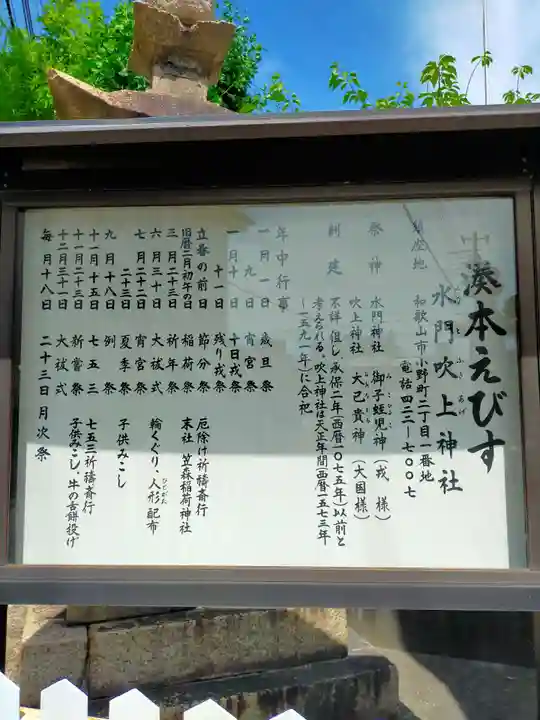 湊本えびす
水門吹上神社
みなと ふきあげ
所在地 和歌山市小野町二丁目一番地
電話四二二―七〇〇七
祭神 水門神社 御子蛭児神（戎様）
吹上神社 大己貴神（大国様）
創建 不詳但し、承保二年（西暦一〇七五年）以前と
考えられる。吹上神社は天正年間（西暦一五七三年
―一五九一年）に合祀
年中行事
一月一日 歳旦祭
九日 宵宮祭
一月十日 十日戎祭
十一日 残り戎祭
立春の前日 節分祭 厄除け祈祷斎行
旧暦二月初午の日 稲荷祭 末社 笠森稲荷神社
三月二十三日 祈年祭
六月三十日 大祓式 輪くぐり、人形配布
ひとがた
七月二十二日 宵宮祭
二十三日 夏季祭 子供みこし
九月十八日 例祭
十一月十五日 七五三 七五三祈祷斎行
十一月二十三日 新嘗祭 子供みこし、牛の舌餅投げ
十二月三十一日 大祓式
毎月十八日 二十三日 月次祭